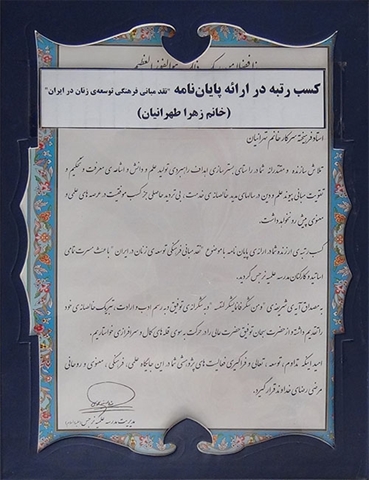 کسب رتبه در ارائه پایان‌نامه "نقد مبانی فرهنگی توسعه‌ی زنان در ایران"
(خانم زهرا طهرانیان)
استاد فرهیخته سرکار خانم تهرانیان
تلاش سازنده و مقتدرانه شما در راستای بسترسازی اهداف راهبردی تولید علم و دانش و اشاعه‌ی معرفت و تحکیم و
تقویت مبانی پیوند علم و دین در سالهای مدید خالصانه‌ی خدمت، بی‌تردید حاصلی جز کسب موفقیت در عرصه های علمی و
معنوی پیش رو نخواهد داشت.
کسب رتبه‌ی ارزنده شما در ارائه‌ی پایان نامه با موضوع "نقد مبانی فرهنگی توسعه‌ی زنان در ایران" باعث مسرت تمامی
اساتید و کارکنان مدرسه علمیه نرجس گردید.
به مصداق آیه‌ی شریفه‌ی "و من شکر فانما یشکر لنفسه" و به شکرانه‌ی این توفیق به رسم ادب و ارادت، تبریک خالصانه‌ی خود
را تقدیم داشته و از حضرت سبحان توفیق حضرت عالی را در حرکت به سوی قله های کمال و سرافرازی خواستاریم.
امید اینکه تداوم، توسعه، تعالی و فراگیری فعالیت های پژوهشی شما در این جایگاه علمی، فرهنگی، معنوی و روحانی
مرضی رضای خداوند قرار گیرد.
مدیریت مدرسه علمیه نرجس